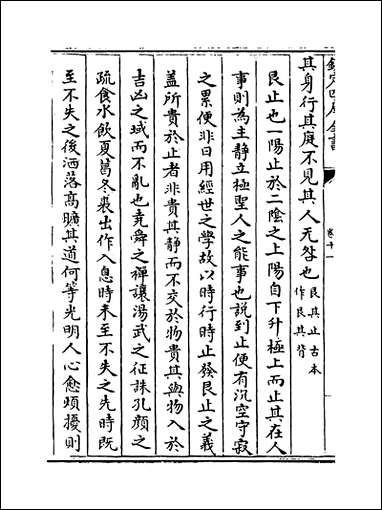 欽定四庫全書
卷十一
其身行其庭不見其人无咎也
艮其止古本
作艮其背
艮止也一陽止於二陰之上陽自下升極上而止其在人
事則為主靜立極聖人之能事也說到止便有沉空守寂
之累便非日用經世之學故以時行時止發艮止之義
蓋所貴於止者非貴其靜而不交於物貴其與物入於
吉凶之域而不亂也堯舜之禪讓湯武之征誅孔顏之
疏食水飲夏葛冬裘出作入息時未至不失之先時既
至不失之後洒落高曠其道何等光明人心愈煩擾則